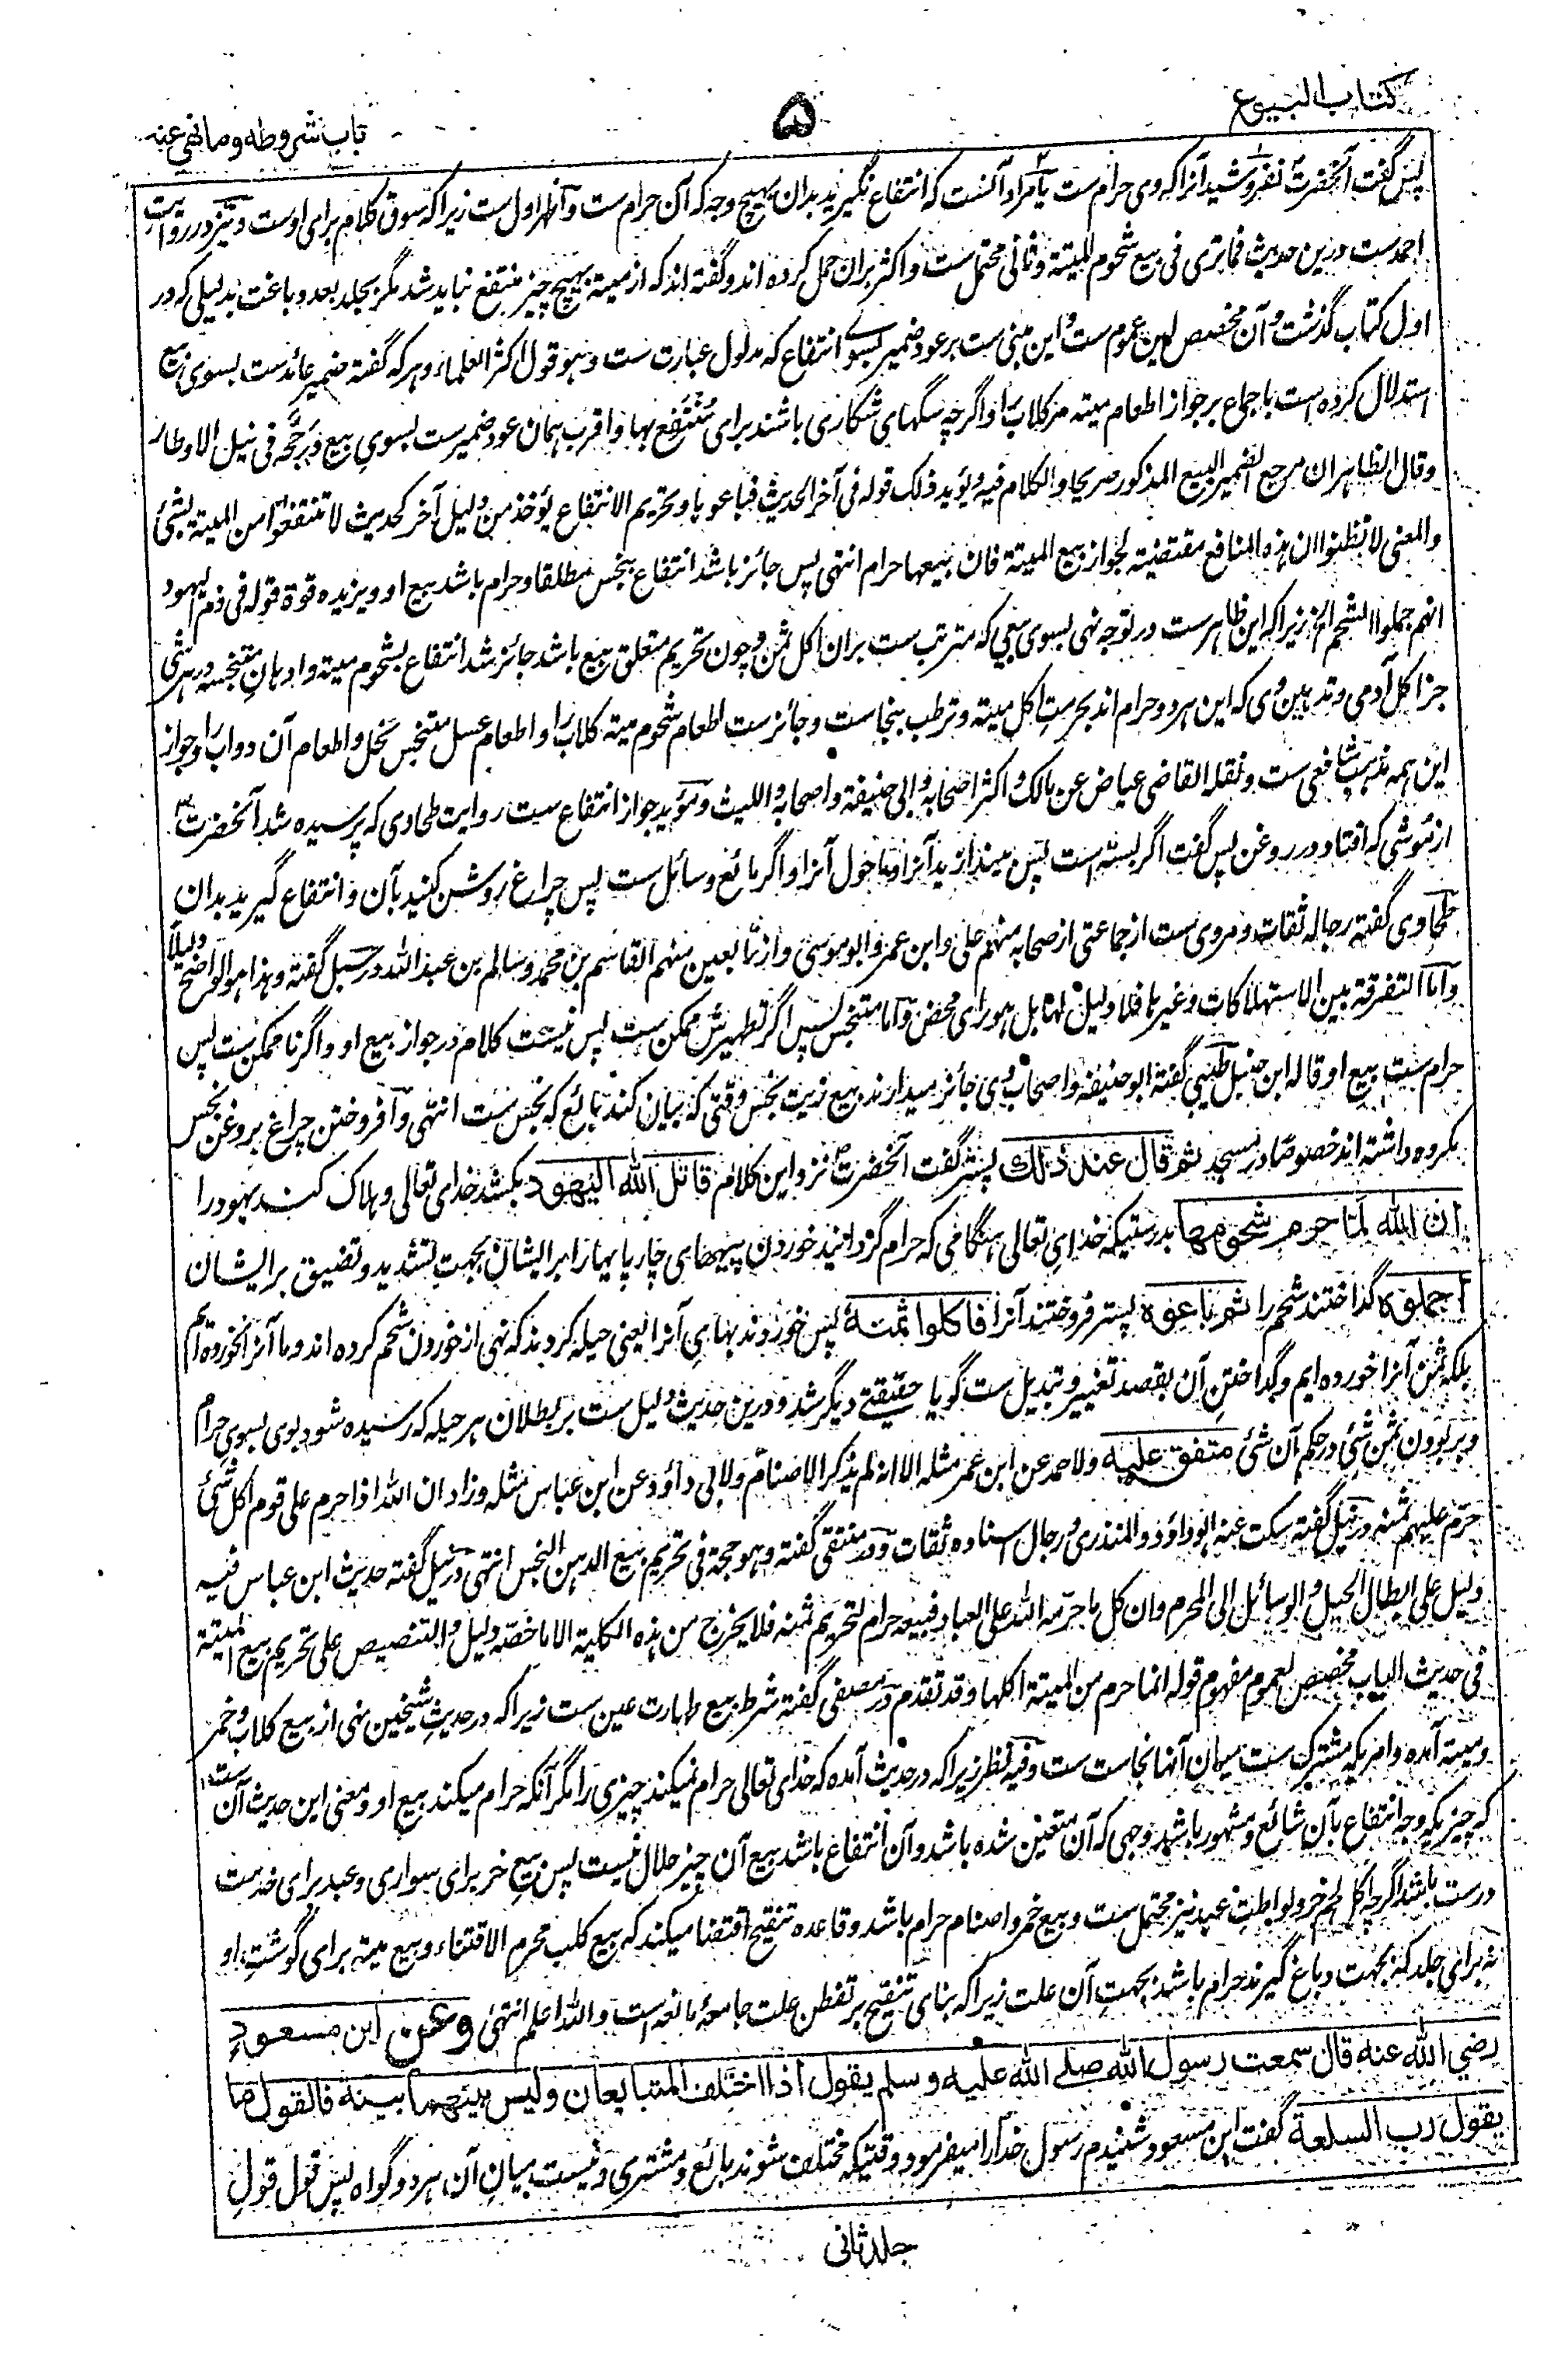 كتاب البيوع
۵
باب شروطه وما نهي عنه
پس گفت آنحضرت نفروشید آنرا که وی حرام ست یا مراد آنست که انتفاع نگیرید بدان بهیچ وجه که آن حرام ست و اظهر اول ست زیرا که سوق کلام برای اوست و نیز در روایت
احمدست درین حدیث فما ترى فى بيع شحوم الميتة و ثانی محتمل ست و اکثر بران حمل کرده اند و گفته اند که از میته بهیچ چیز منتفع نباید شد مگر بجلد بعد دباغت بدلیلی که در
اول کتاب گذشت و آن مخصص این عموم ست و این مبنی ست بر عود ضمیر بسوی انتفاع که مدلول عبارت ست و هو قول اکثر العلماء و هر که گفته ضمیر عائدست بسوی بیع
استدلال کرده است باجماع بر جواز اطعام میته مر کلاب را و اگرچه سگهای شکاری باشند برای منتفع بها و اقرب همان عود ضمیرست بسوی بیع و رجحه فى نيل الاوطار
وقال الظاهر ان مرجع الضمير البيع المذكور صريحا و الكلام فيه و يؤيد ذلك قوله فى آخر الحديث فباعوها و تحريم الانتفاع يؤخذ من دليل آخر كحديث لا تنتفعوا من الميتة بشئ
والمعنى لا تظنوا ان هذه المنافع مقتضية لجواز بيع الميتة فان بيعها حرام انتهى پس جائز باشد انتفاع بنجس مطلقا و حرام باشد بیع او و یزیده قوة قوله فى ذم اليهود
انهم جملوا الشحم الخ زیرا که این ظاهرست در توجه نهی بسوی بیعی که مترتب ست بران اکل ثمن و چون تحریم متعلق ببیع باشد جائز شد انتفاع بشحوم میته و ادهان متنجسه در هر شی
جز اکل آدمی و تدهین وی که این هر دو حرام اند بحرمت اکل میته و ترطب بنجاست و جائزست اطعام شحوم میته کلاب را و اطعام عسل متنجس نحل و اطعام آن دواب را و جواز
این همه مذهب شافعی ست و نقله القاضى عياض عن مالك و اكثر اصحابه و ابى حنيفة و اصحابه و الليث و مؤید جواز انتفاع ست روایت طحاوی که پرسیده شد آنحضرت
از موشی که افتاد در روغن پس گفت اگر بسته است پس بیندازید آنرا و ماحول آنرا و اگر مائع و سائل ست پس چراغ روشن کنید بآن و انتفاع گیرید بدان
طحاوی گفته رجاله ثقات و مروی ست از جماعتی از صحابه منهم علی و ابن عمر و ابو موسی و از تابعین منهم القاسم بن محمد و سالم بن عبد الله و در سبل گفته و هذا هو الواضح دليلا
واما التفرقة بين الاستهلاكات و غيرها فلا دليل لها بل هو رأى محض و اما متنجس پس اگر تطهیرش ممکن ست پس نیست کلام در جواز بیع او و اگر ناممکن ست پس
حرام ست بیع او قاله ابن حنبل طیبی گفته ابو حنیفه و اصحاب وی جائز میدارند بیع زیت نجس وقتی که بیان کند بائع که نجس ست انتهی و افروختن چراغ بروغن نجس
مکروه داشته اند خصوصا در مسجد ثم قال عند ذلك پستر گفت آنحضرت نزد این کلام قاتل الله اليهود بکشد خدای تعالی و هلاک کند یهود را
ان الله لما حرم شحومها بدرستیکه خدای تعالی هنگامی که حرام گردانید خوردن پیههای چارپایها را بر ایشان بجهت تشدید و تضییق بر ایشان
اجملوه گداختند شحم را ثم باعوه پستر فروختند آنرا فاكلوا ثمنه پس خوردند بهای آنرا یعنی حیله کردند که نهی از خوردن شحم کرده اند و ما آنرا نخورده ایم
بلکه ثمن آنرا خورده ایم و گداختن آن بقصد تغییر و تبدیل ست گویا حقیقتی دیگر شد و درین حدیث دلیل ست بر بطلان هر حیله که رسیده شود بوی بسوی حرام
و بر بودن ثمن شئ در حکم آن شئ متفق عليه ولاحمد عن ابن عمر مثله الا انه لم يذكر الاصنام ولابى داؤد عن ابن عباس مثله و زاد ان الله اذا حرم على قوم اكل شئ
حرم عليهم ثمنه در نیل گفته سكت عنه ابو داؤد و المنذرى و رجال اسناده ثقات و در منتقی گفته و هو حجة فى تحريم بيع الدهن النجس انتهى در نیل گفته حديث ابن عباس فيه
دليل على ابطال الحيل و الوسائل الى المحرم و ان كل ما حرمه الله على العباد فبيعه حرام لتحريم ثمنه فلا يخرج من هذه الكلية الا ما خصه دليل و التنصيص على تحريم بيع الميتة
فى حديث الباب مخصص لعموم مفهوم قوله انما حرم من الميتة اكلها و قد تقدم در مصفی گفته شرط بیع طهارت عین ست زیرا که در حدیث شیخین نهی از بیع کلاب و خمر
و میته آمده و امریکه مشترک ست میان آنها نجاست ست و فیه نظر زیرا که در حدیث آمده که خدای تعالی حرام نمیکند چیزی را مگر آنکه حرام میکند بیع او و معنی این حدیث آن ست
که چیزیکه وجه انتفاع بآن شائع و مشهور باشد بوجهی که آن متعین شده باشد و آن انتفاع باشد بیع آن چیز حلال نیست پس بیع خر برای سواری و عبد برای خدمت
درست باشد اگرچه اکل لحم خر و لواطت عبد نیز محتمل ست و بیع خمر و اصنام حرام باشد و قاعده تنقیح اقتضا میکند که بیع کلب محرم الاقتناء و بیع میته برای گوشت او
نه برای جلد که بجهت دباغ گیرند حرام باشد بجهت آن علت زیرا که بنای تنقیح بر تفطن علت جامعه مانعه است و الله اعلم انتهی وعن ابن مسعود
رضي الله عنه قال سمعت رسول الله صلى الله عليه وسلم يقول اذا اختلف المتبايعان وليس بينهما بينة فالقول ما
يقول رب السلعة گفت ابن مسعود شنیدم رسول خدا را میفرمود وقتیکه مختلف شوند بائع و مشتری و نیست میان آن هر دو گواه پس قول قول
جلد ثانى